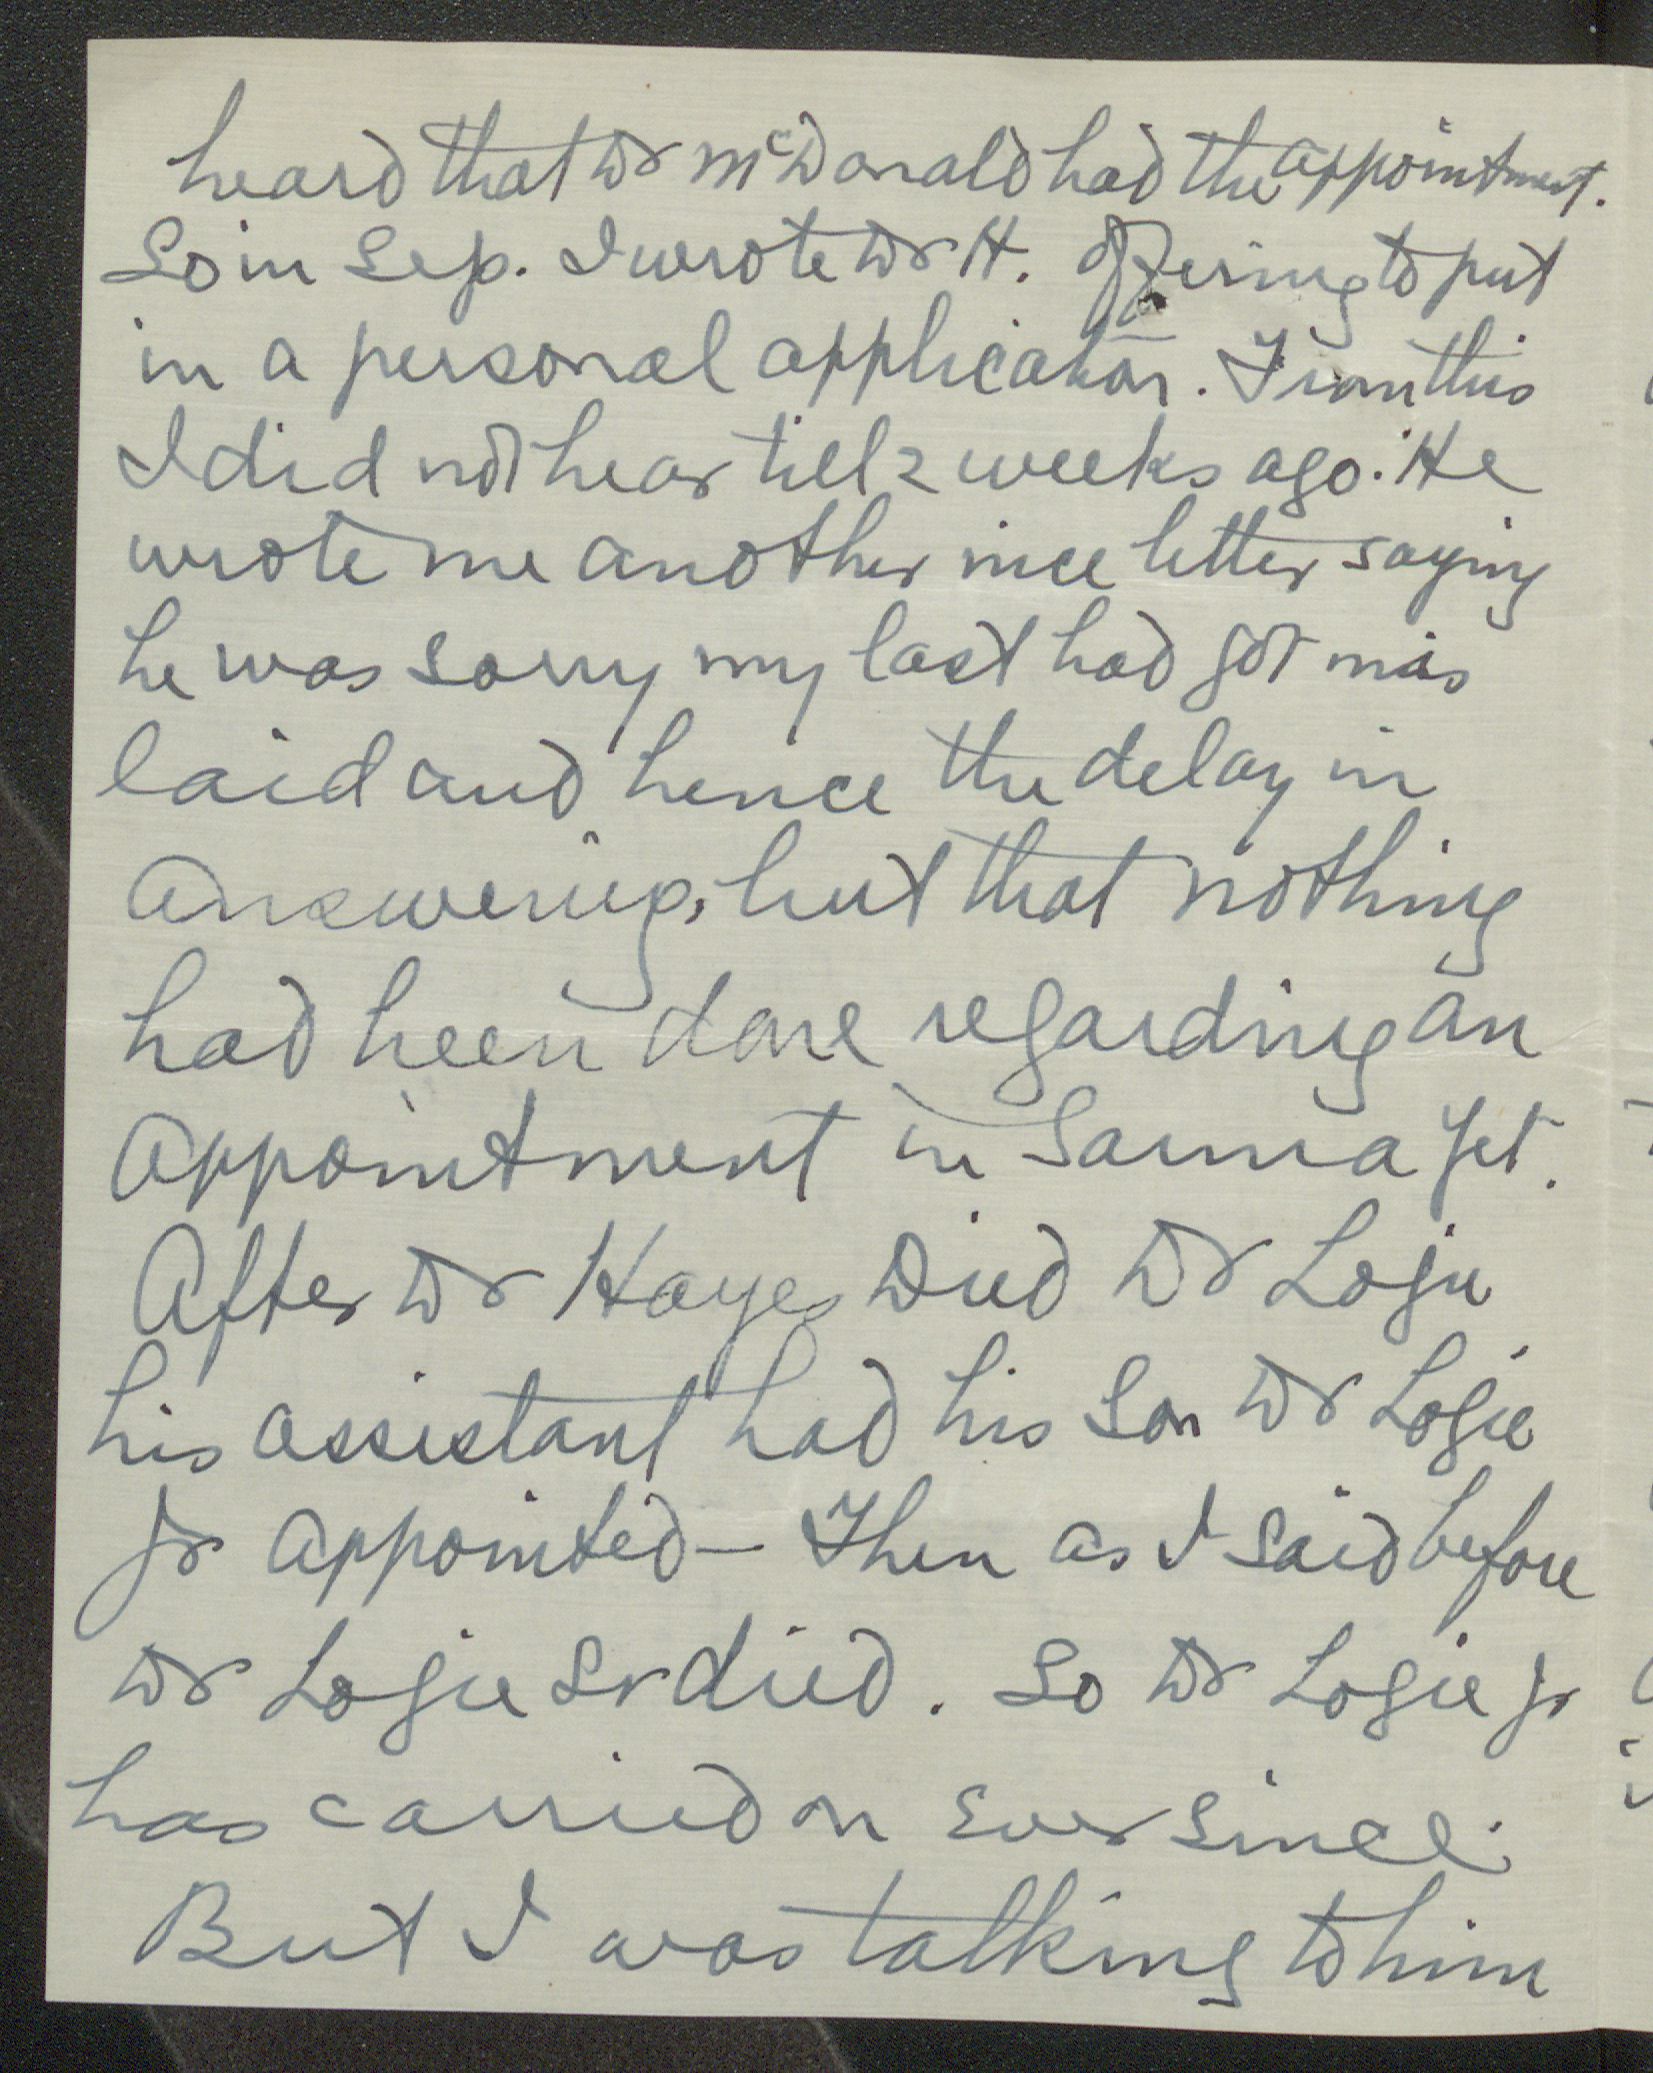 heard that Dr McDonald had the appointment.
So in Sep. I wrote Dr H. offering to put
in a personal application. From this
I did not hear till 2 weeks ago. He
wrote me another nice letter saying
he was sorry my last had got mis
laid and hence the delay in
answering, but that nothing
had been done regarding an
appointment in Sarnia yet.
After Dr Hayes Died Dr Logie
his assistant had his Son Dr Logie
Jr appointed — Then as I said before
Dr Logie Sr died. So Dr Logie Jr
has carried on ever since.
But I was talking to him